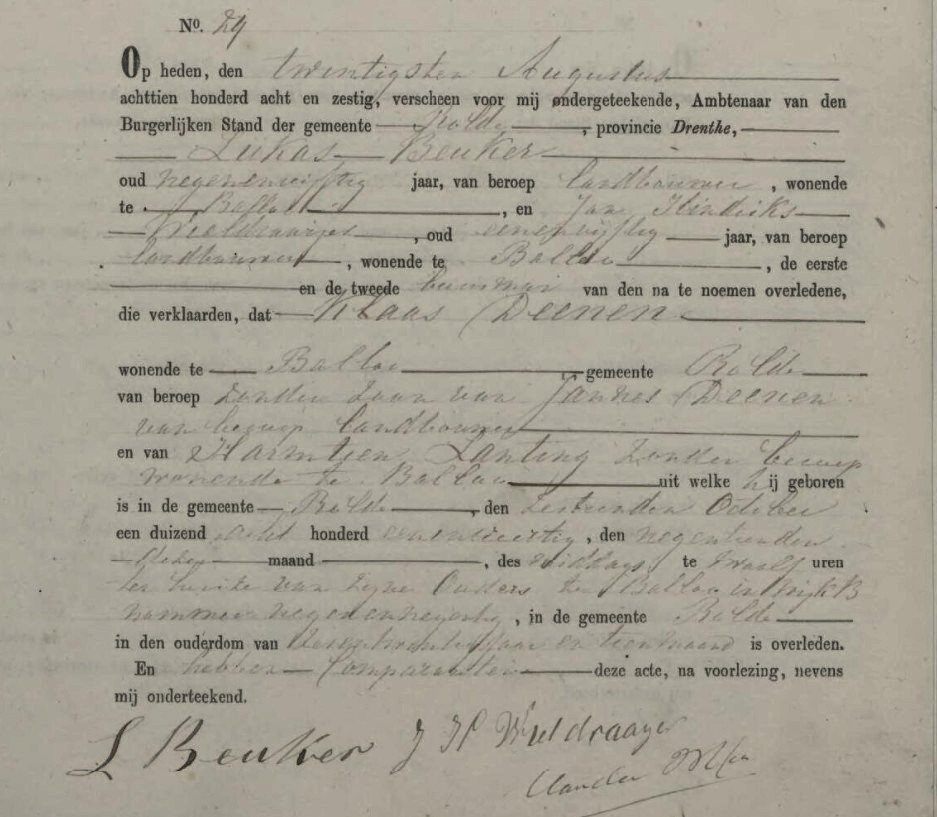 No. 29
Op heden, den twintigsten Augustus
achttien honderd acht en zestig, verscheen voor mij ondergeteekende, Ambtenaar van den
Burgerlijken Stand der gemeente Rolde, provincie Drenthe,
Lukas Beuker
oud negenenvijftig jaar, van beroep landbouwer, wonende
te Balloo, en Jan Hindriks
Wieldraaijer, oud eenenvijftig jaar, van beroep
landbouwer, wonende te Balloo, de eerste
en de tweede buurman van den na te noemen overledene,
die verklaarden, dat Klaas Deenen
wonende te Balloo gemeente Rolde
van beroep zonder zoon van Jannes Deenen
van beroep landbouwer
en van Harmtien Lanting zonder beroep
wonende te Balloo uit welke hij geboren
is in de gemeente Rolde, den October
een duizend acht honderd, den negentienden
dezer maand, des middags te twaalf uren
ten huize van zijne Ouders te Balloo in Wijk B
nummer negenennegentig, in de gemeente Rolde
in den ouderdom van jaar en tien maand is overleden.
En hebben Comparanten deze acte, na voorlezing, nevens
mij onderteekend.
L Beuker J H Wieldraayer